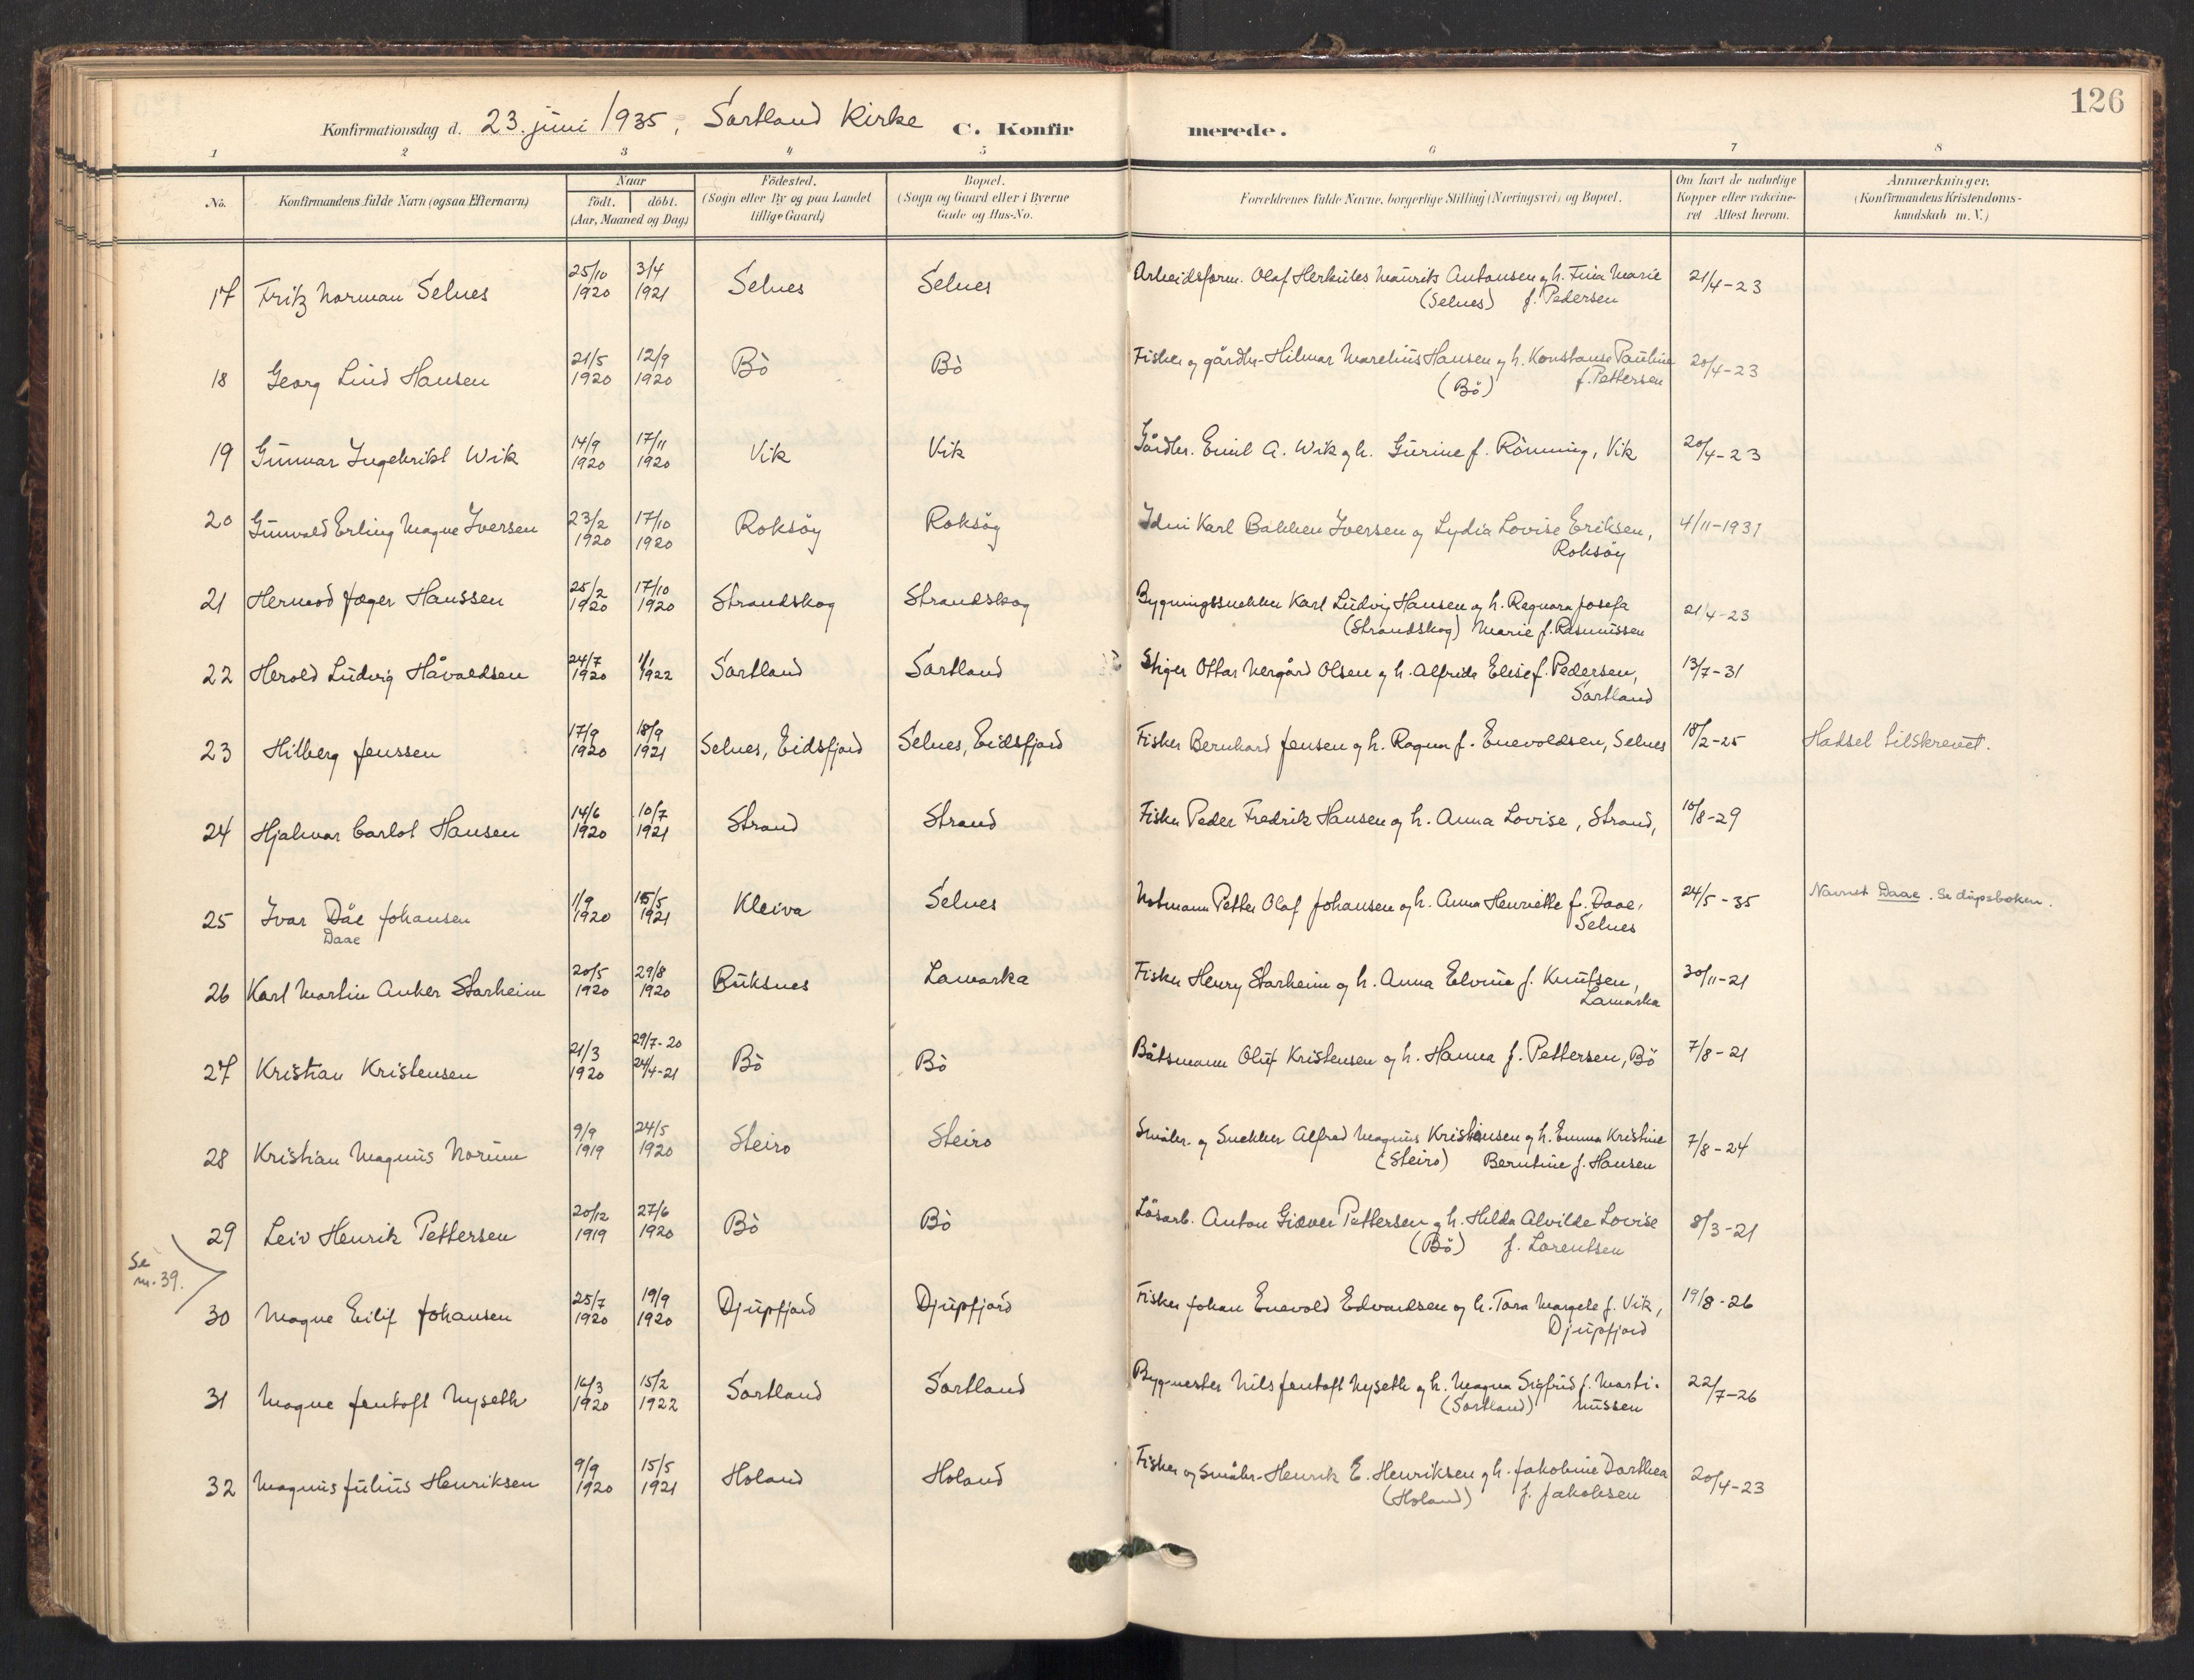 126
Konfirmationsdag d. 23. juni 1935, Sortland Kirke C. Konfirmerede.
1 2 3 4 5 6 7 8
No. Konfirmandens fulde Navn (ogsaa Efternavn) Naar födt. döbt. (Aar, Maaned og Dag) Födested. (Sogn eller By og paa Landet tillige Gaard) Bopæl. (Sogn og Gaard eller i Byerne Gade og Hus-No. Forældrenes fulde Navne, borgerlige Stilling (Næringsvei) og Bopæl. Om havt de naturlige Kopper eller vakcineret Attest herom. Anmærkninger. (Konfirmandens Kristendomskundskab m. V.)
17 Fritz Norman Selnes 25/10 1920 3/4 1921 Selnes Selnes Arbeidsform. Olaf Herkules Maurits Antonsen og h. Fina Marie 21/4-23
(Selnes) f. Pedersen
18 Georg Lind Hansen 21/5 1920 12/9 1920 Bö Bö Fisker og gårdbr. Hilmar Marelius Hansen og h. Konstanse Pauline 20/4-23
(Bö) f. Pettersen
19 Gunnar Ingebrikt Wik 14/9 1920 17/11 1920 Vik Vik Gårdbr. Emil A. Wik og h. Gurine f. Rönning, Vik 20/4-23
20 Gunvald Erling Magne Iversen 23/2 1920 17/10 1920 Roksöy Roksöy Idin Karl Bakken Iversen og Lydia Lovise Eriksen, 4/11-1931
Roksöy
21 Hermod Jæger Hanssen 25/2 1920 17/10 1920 Strandskog Strandskog Bygningssnekker Karl Ludvig Hansen og h. Ragnara Josefa 21/4-23
(Strandskog) Marie f. Rasmussen
22 Herold Ludvig Håvaldsen 24/7 1920 1/1 1922 Sortland Sortland Stiger Ottar Nergård Olsen og h. Alfrida Elise f. Pedersen, 13/7-31
Sortland
23 Hilberg Jenssen 17/9 1920 18/9 1921 Selnes, Eidsfjord Selnes, Eidsfjord Fisker Bernhard Jensen og h. Ragna f. Enevoldsen, Selnes 18/2-25 Hadsel tilskrevet.
24 Hjalmar Carlot Hansen 14/6 1920 10/7 1921 Strand Strand Fisker Peder Fredrik Hansen og h. Anna Lovise, Strand, 10/8-29
25 Ivar Dåe Johansen 1/9 1920 15/5 1921 Kleiva Selnes Notmann Petter Olaf Johansen og h. Anna Henriette f. Daae, 24/5-35 Navnet Daae. Se dåpsboken.
Daae Selnes
26 Karl Martin Anker Starheim 20/5 1920 29/8 1920 Buksnes Lamarka Fisker Henry Starheim og h. Anna Elvine f. Knutsen, 30/11-21
Lamarka
27 Kristian Kristensen 21/3 1920 29/7-20 24/4-21 Bö Bö Båtsmann Oluf Kristensen og h. Hanna f. Pettersen, Bö 7/8-21
28 Kristian Magnus Norum 9/9 1919 24/5 1920 Steiro Steiro Småbr. og Snekker Alfred Magnus Kristiansen og h. Emma Kristine 7/8-24
(Steiro) Berntine f. Hansen
29 Leiv Henrik Pettersen 20/12 1919 27/6 1920 Bö Bö Lösarb. Anton Giæver Pettersen og h. Hilda Alvilde Lovise 8/3-21
(Bö) f. Lorentsen
Se
nr. 39.
30 Magne Eilif Johansen 25/7 1920 19/9 1920 Djupfjord Djupfjord Fisker Johan Enevold Edvardsen og h. Tora Margete f. Vik, 19/8-26
Djupfjord
31 Magne Jentoft Nyseth 16/3 1920 15/2 1922 Sortland Sortland Bygmester Nils Jentoft Nyseth og h. Magna Sigfrid f. Marti- 22/7-26
(Sortland) nussen
32 Magnus Julius Henriksen 9/9 1920 15/5 1921 Holand Holand Fisker og Småbr. Henrik E. Henriksen og h. Jakobine Dorthea 20/4-23
(Holand) f. Jakobsen